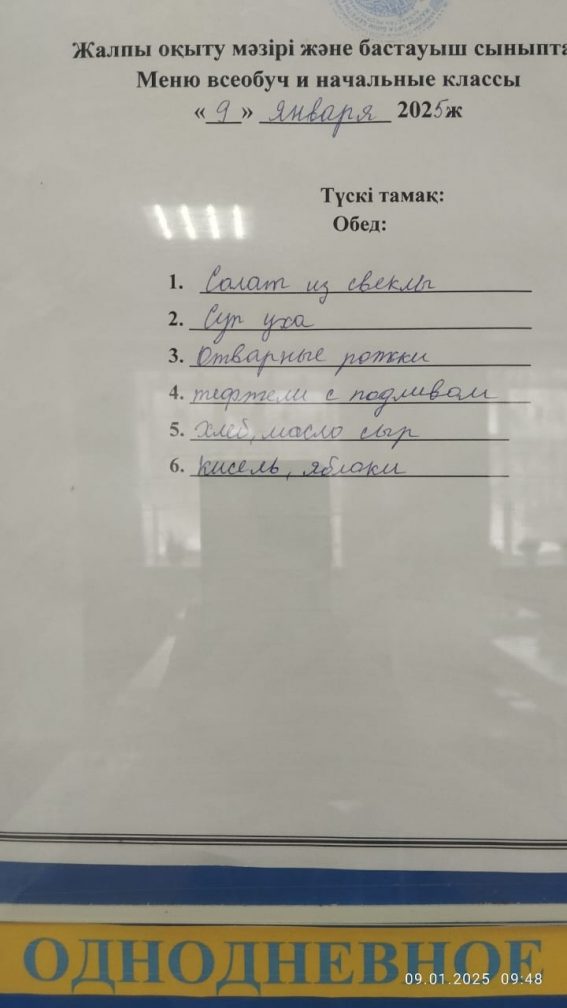 Жалпы оқыту мәзірі және бастауыш сыныпта
Меню всеобуч и начальные классы
«9» января 2025ж
Түскі тамақ:
Обед:
1. Салат из свеклы
2. Суп уха
3. Отварные рожки
4. тефтели с подливом
5. хлеб, масло сыр
6. кисель, яблоки
ОДНОДНЕВНОЕ
09.01.2025 09:48